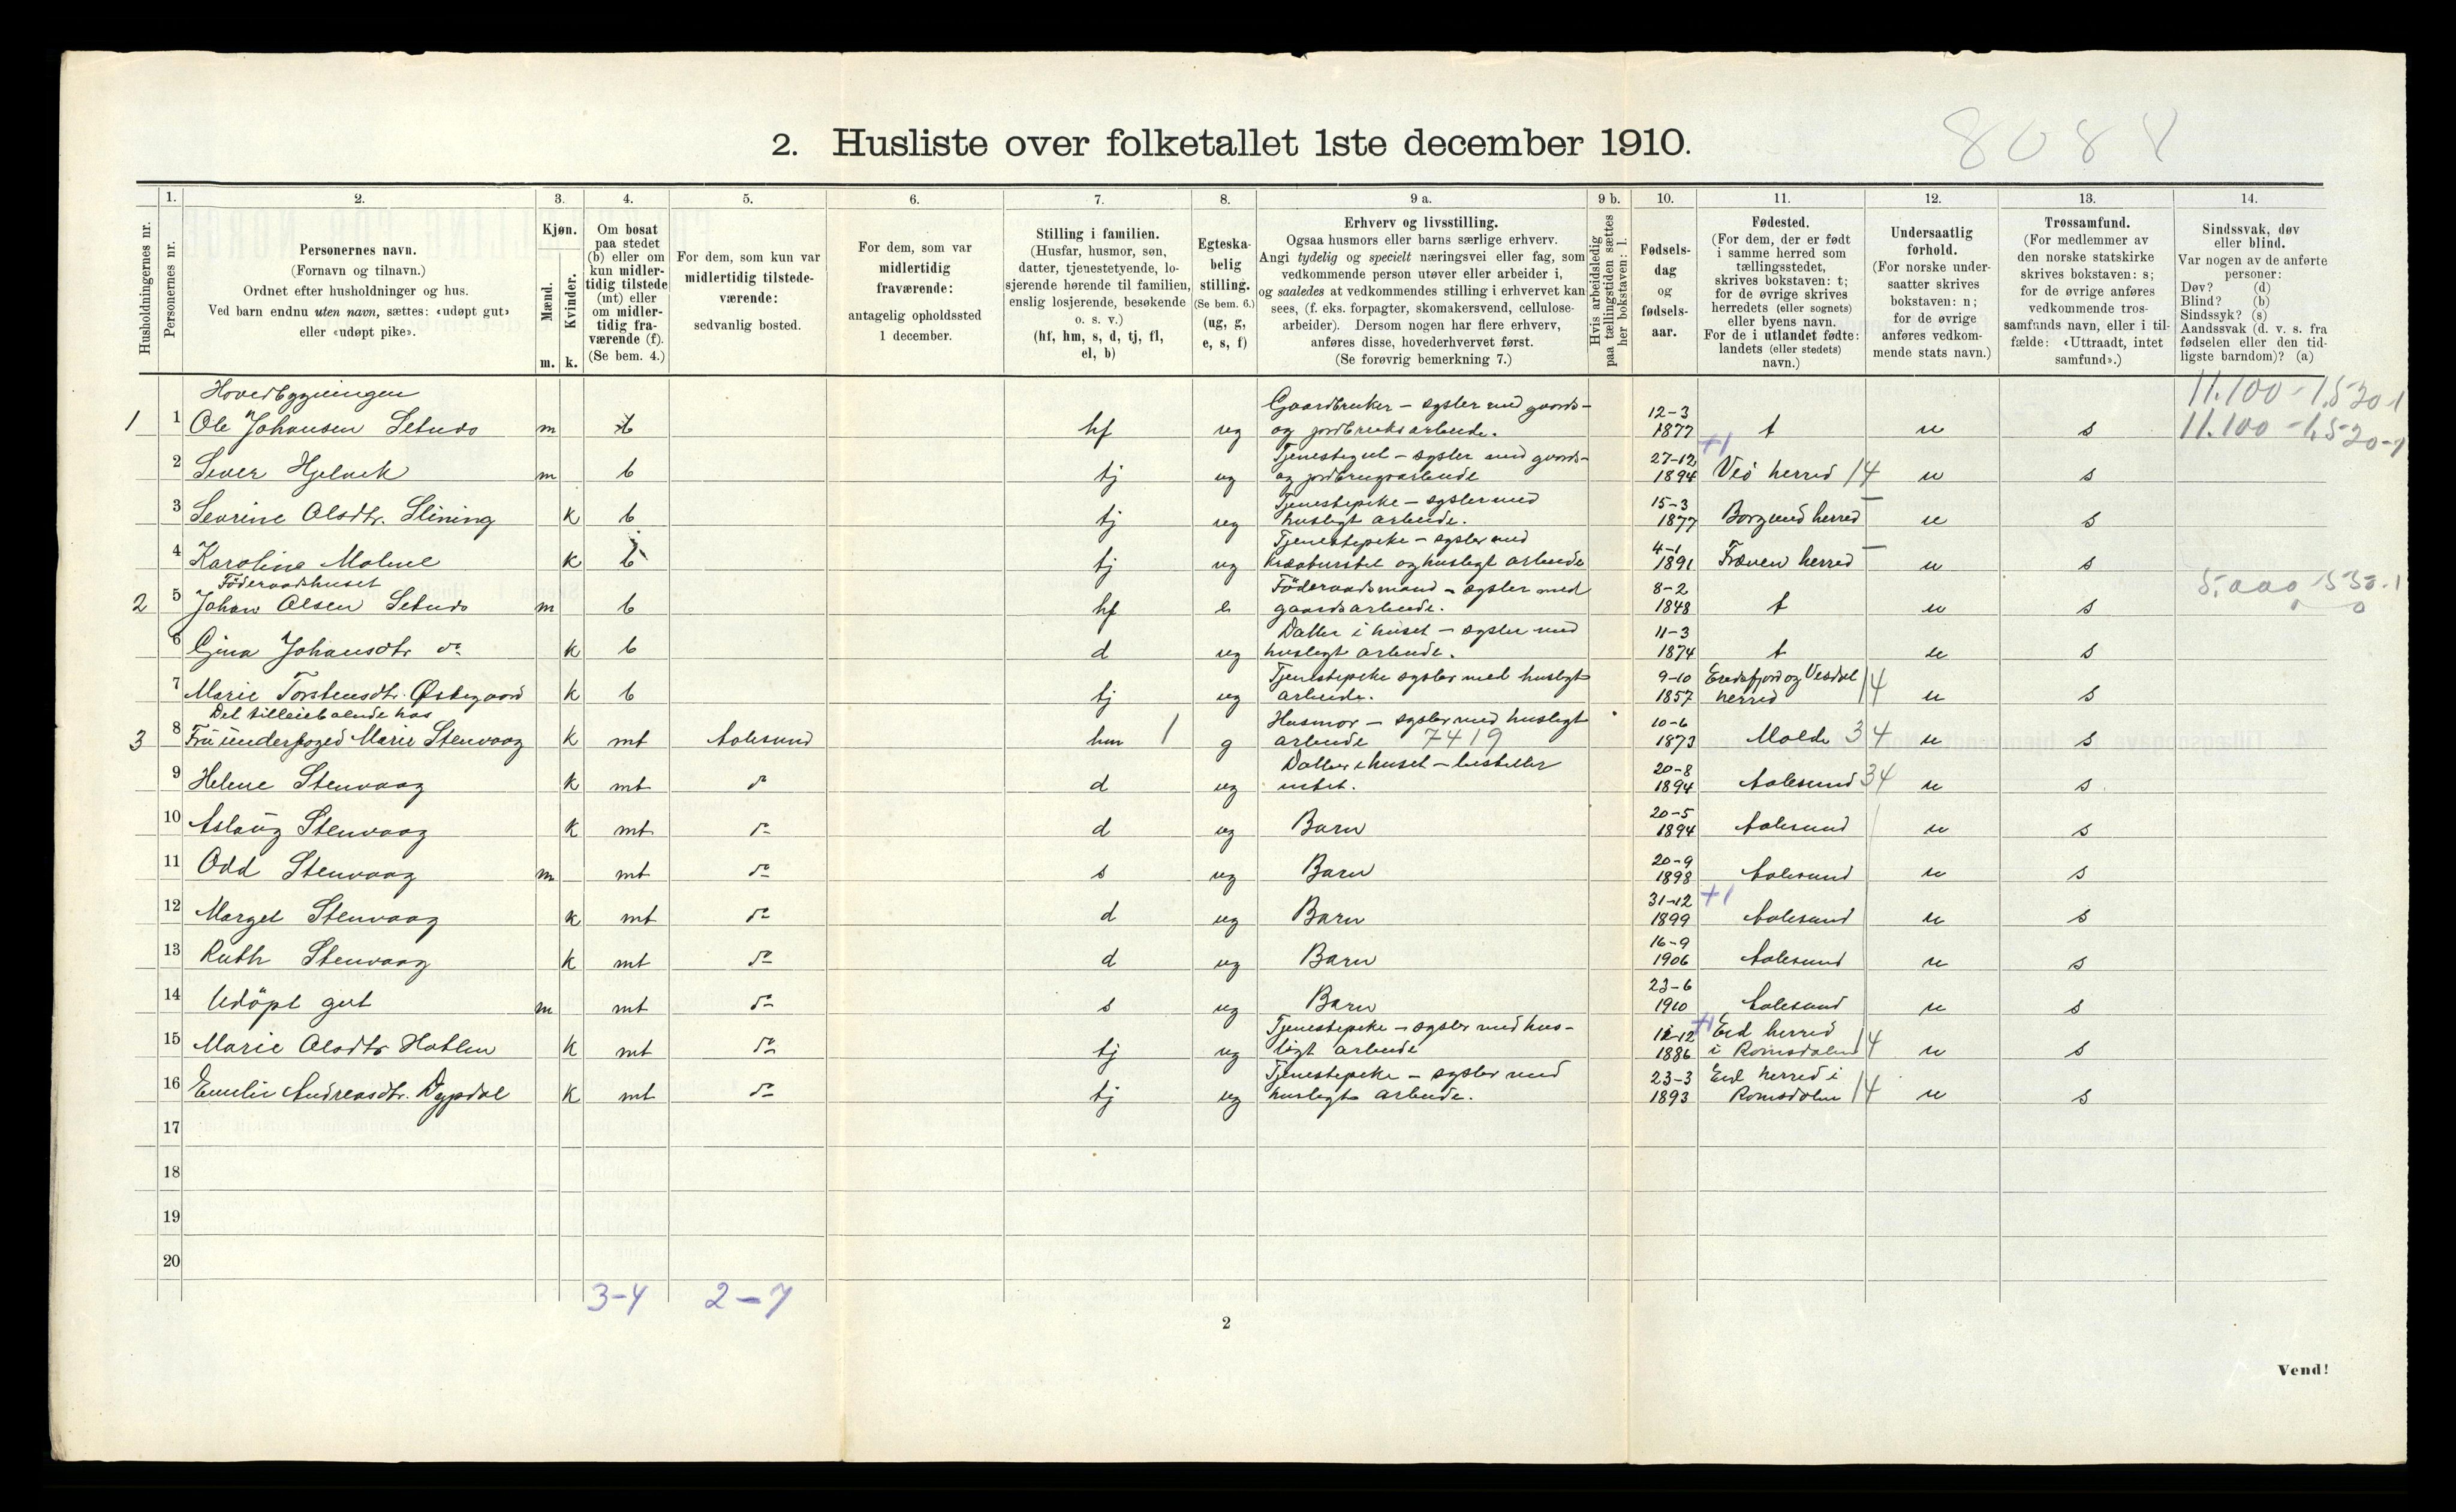 2. Husliste over folketallet 1ste december 1910.
8084
Husholdningernes nr.
1.
Personernes nr.
2.
Personernes navn.
(Fornavn og tilnavn.)
Ordnet efter husholdninger og hus.
Ved barn endnu uten navn, sættes: «udøpt gut»
eller «udøpt pike».
3.
Kjøn.
Mænd.
Kvinder.
m. k.
4.
Om bosat
paa stedet
(b) eller om
kun midler-
tidig tilstede
(mt) eller
om midler-
tidig fra-
værende (f).
(Se bem. 4.)
5.
For dem, som kun var
midlertidig tilstede-
værende:
sedvanlig bosted.
6.
For dem, som var
midlertidig
fraværende:
antagelig opholdssted
1 december.
7.
Stilling i familien.
(Husfar, husmor, søn,
datter, tjenestetyende, lo-
sjerende hørende til familien,
enslig losjerende, besøkende
o. s. v.)
(hf, hm, s, d, tj, fl,
el, b)
8.
Egteska-
belig
stilling.
(Se bem. 6.)
(ug, g,
e, s, f)
9 a.
Erhverv og livsstilling.
Ogsaa husmors eller barns særlige erhverv.
Angi tydelig og specielt næringsvei eller fag, som
vedkommende person utøver eller arbeider i,
og saaledes at vedkommendes stilling i erhvervet kan
sees, (f. eks. forpagter, skomakersvend, cellulose-
arbeider). Dersom nogen har flere erhverv,
anføres disse, hovederhvervet først.
(Se forøvrig bemerkning 7.)
9 b.
Hvis arbeidsledig
paa tællingstiden sættes
her bokstaven: l.
10.
Fødsels-
dag
og
fødsels-
aar.
11.
Fødested.
(For dem, der er født
i samme herred som
tællingsstedet,
skrives bokstaven: t;
for de øvrige skrives
herredets (eller sognets)
eller byens navn.
For de i utlandet fødte:
landets (eller stedets)
navn.)
12.
Undersaatlig
forhold.
(For norske under-
saatter skrives
bokstaven: n;
for de øvrige
anføres vedkom-
mende stats navn.)
13.
Trossamfund.
(For medlemmer av
den norske statskirke
skrives bokstaven: s;
for de øvrige anføres
vedkommende tros-
samfunds navn, eller i til-
fælde: «Uttraadt, intet
samfund».)
14.
Sindssvak, døv
eller blind.
Var nogen av de anførte
personer:
Døv? (d)
Blind? (b)
Sindssyk? (s)
Aandssvak (d. v. s. fra
fødselen eller den tid-
ligste barndom)? (a)
Hovedbygningen
1 1 Ole Johansen Setnes m b hf ug Gaardbruker – sysler med gaards- og jordbruksarbeide. 12-3 1877 t n s
11.100 - 1.520-1
11.100 - 1.520-1
2 Sever Hjelvik m b tj ug Tjenestegut – sysler med gaards- og jordbrugsarbeide 27-12 1894 +1 Veö herred 14 n s
3 Sevrine Olsdtr. Slining k b tj ug Tjenestepike – sysler med husligt arbeide. 15-3 1877 Borgund herred – n s
4 Karoline Malme k b tj ug Tjenestepike – sysler med kreaturstel og husligt arbeide 4-1 1891 Frænen herred – n s
Föderaadshuset
2 5 Johan Olsen Setnes m b hf e Föderaadsmand – sysler med gaardsarbeide. 8-2 1848 t n s
5.000 530-1
6 Gina Johansdtr do k b d ug Datter i huset – sysler med husligt arbeide. 11-3 1874 t n s
7 Marie Torstensdtr. Østigaard k b tj ug Tjenestepike sysler med husligt arbeide. 9-10 1857 Eredsfjord og Vesdal herred 14 n s
Det tilleieboende hos
3 8 Fru underfoged Marie Stenvaag k mt Aalesund hm 1 g Husmor – sysler med husligt arbeide 7419 10-6 1873 Molde 34 n s
9 Helene Stenvaag k mt do d ug Datter i huset – bestiller intet. 20-8 1894 Aalesund 34 n s
10 Aslaug Stenvaag k mt do d ug Barn 20-5 1894 Aalesund n s
11 Odd Stenvaag m mt do s ug Barn 20-9 1898 Aalesund n s
12 Marget Stenvaag k mt do d ug Barn 31-12 1899 +1 Aalesund n s
13 Ruth Stenvaag k mt do d ug Barn 16-9 1906 Aalesund n s
14 Udöpt gut m mt do s ug Barn 23-6 1910 Aalesund n s
15 Marie Olsdtr Hatlen k mt do tj ug Tjenestepike – sysler med husligt arbeide 12-12 1886 +1 Eid herred i Romsdalen 14 n s
16 Emilie Andreasdtr. Dypdal k mt do tj ug Tjenestepike – sysler med husligt arbeide. 23-3 1893 Eid herred i Romsdalen 14 n s
17
18
19
20
3-4 2-7
2
Vend!